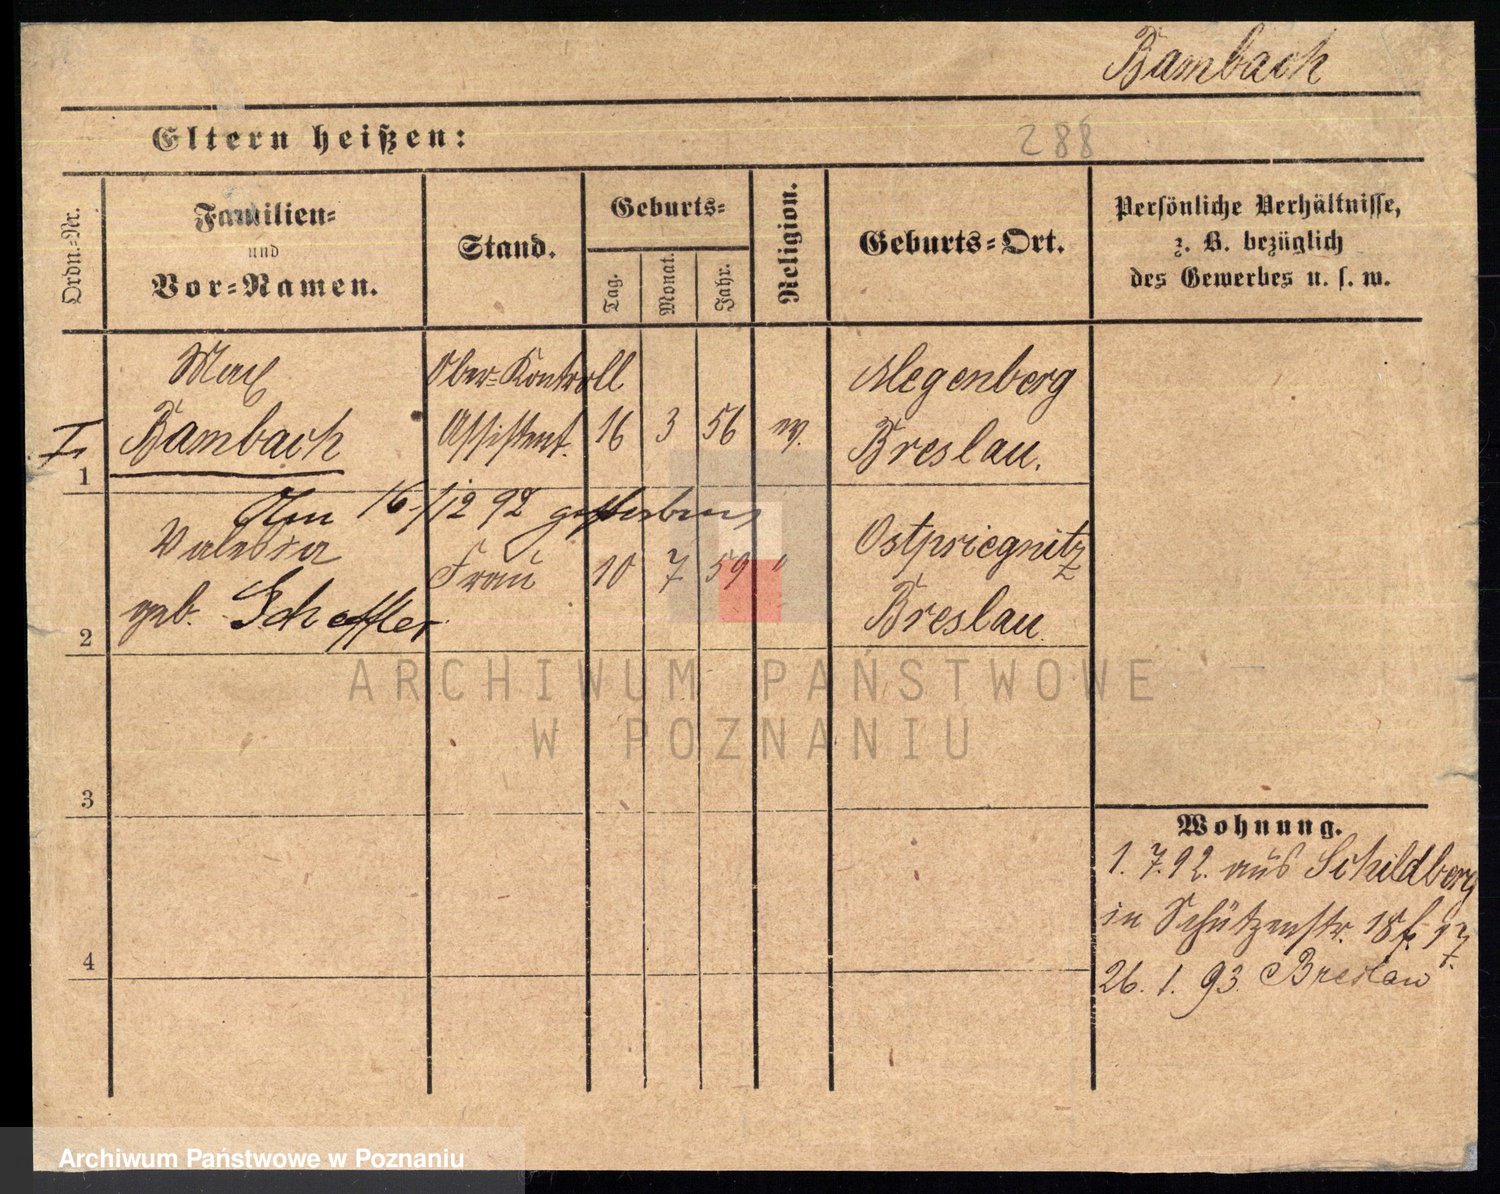 Bambach
Eltern heißen:
288
Ordn.-Nr.
Familien-
und
Vor-Namen.
Stand.
Geburts-
Tag.
Monat.
Jahr.
Religion.
Geburts-Ort.
Persönliche Verhältnisse,
z. B. bezüglich
des Gewerbes u. s. w.
Max Ober-Kontroll
I Bambach Assistent. 16 3 56 ev. Breslau.
1
Am 16/12 92 gestorben
Valeska Ostpriegnitz
Frau 10 7 59 "
geb. Scheffler Breslau.
2
3
4
Wohnung.
1. 7. 92. aus Schildberg
in Schützenstr.
26. 1. 93. Breslau
ARCHIWUM PAŃSTWOWE
W POZNANIU
Archiwum Państwowe w Poznaniu